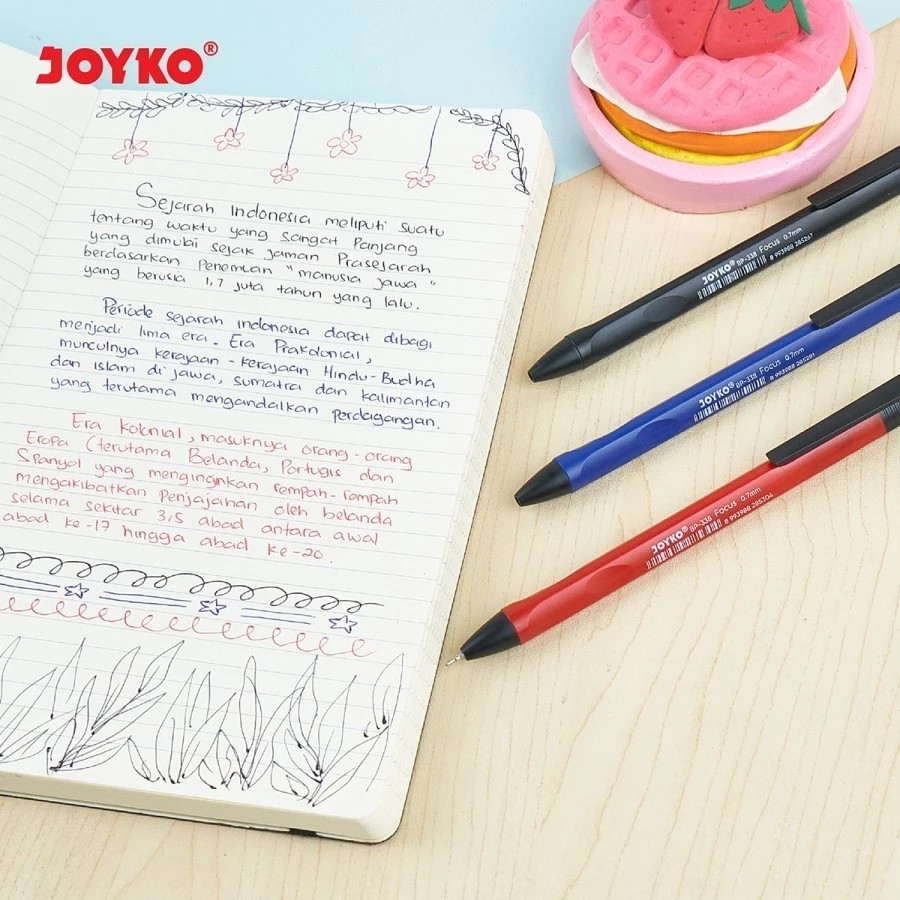 JOYKO®
Sejarah Indonesia meliputi suatu
tentang waktu yang sangat Panjang
yang dimulai sejak jaman Prasejarah
berdasarkan Penemuan "manusia jawa"
yang berusia 1,7 juta tahun yang lalu.
Periode sejarah indonesia dapat dibagi
menjadi lima era. Era Prakolonial,
munculnya kerajaan-kerajaan Hindu-Budha
dan islam di jawa, sumatra dan kalimantan
yang terutama mengandalkan perdagangan.
Era kolonial, masuknya orang-orang
Eropa (terutama Belanda, Portugis dan
Spanyol yang menginginkan rempah-rampah
mengakibatkan penjajahan oleh belanda
selama sekitar 3,5 abad antara awal
abad ke-17 hingga abad ke-20.
JOYKO® BP-338 Focus 0.7mm
8 993988 285267
JOYKO® BP-338 Focus 0.7mm
8 993988 285281
JOYKO® BP-338 Focus 0.7mm
8 993988 285304